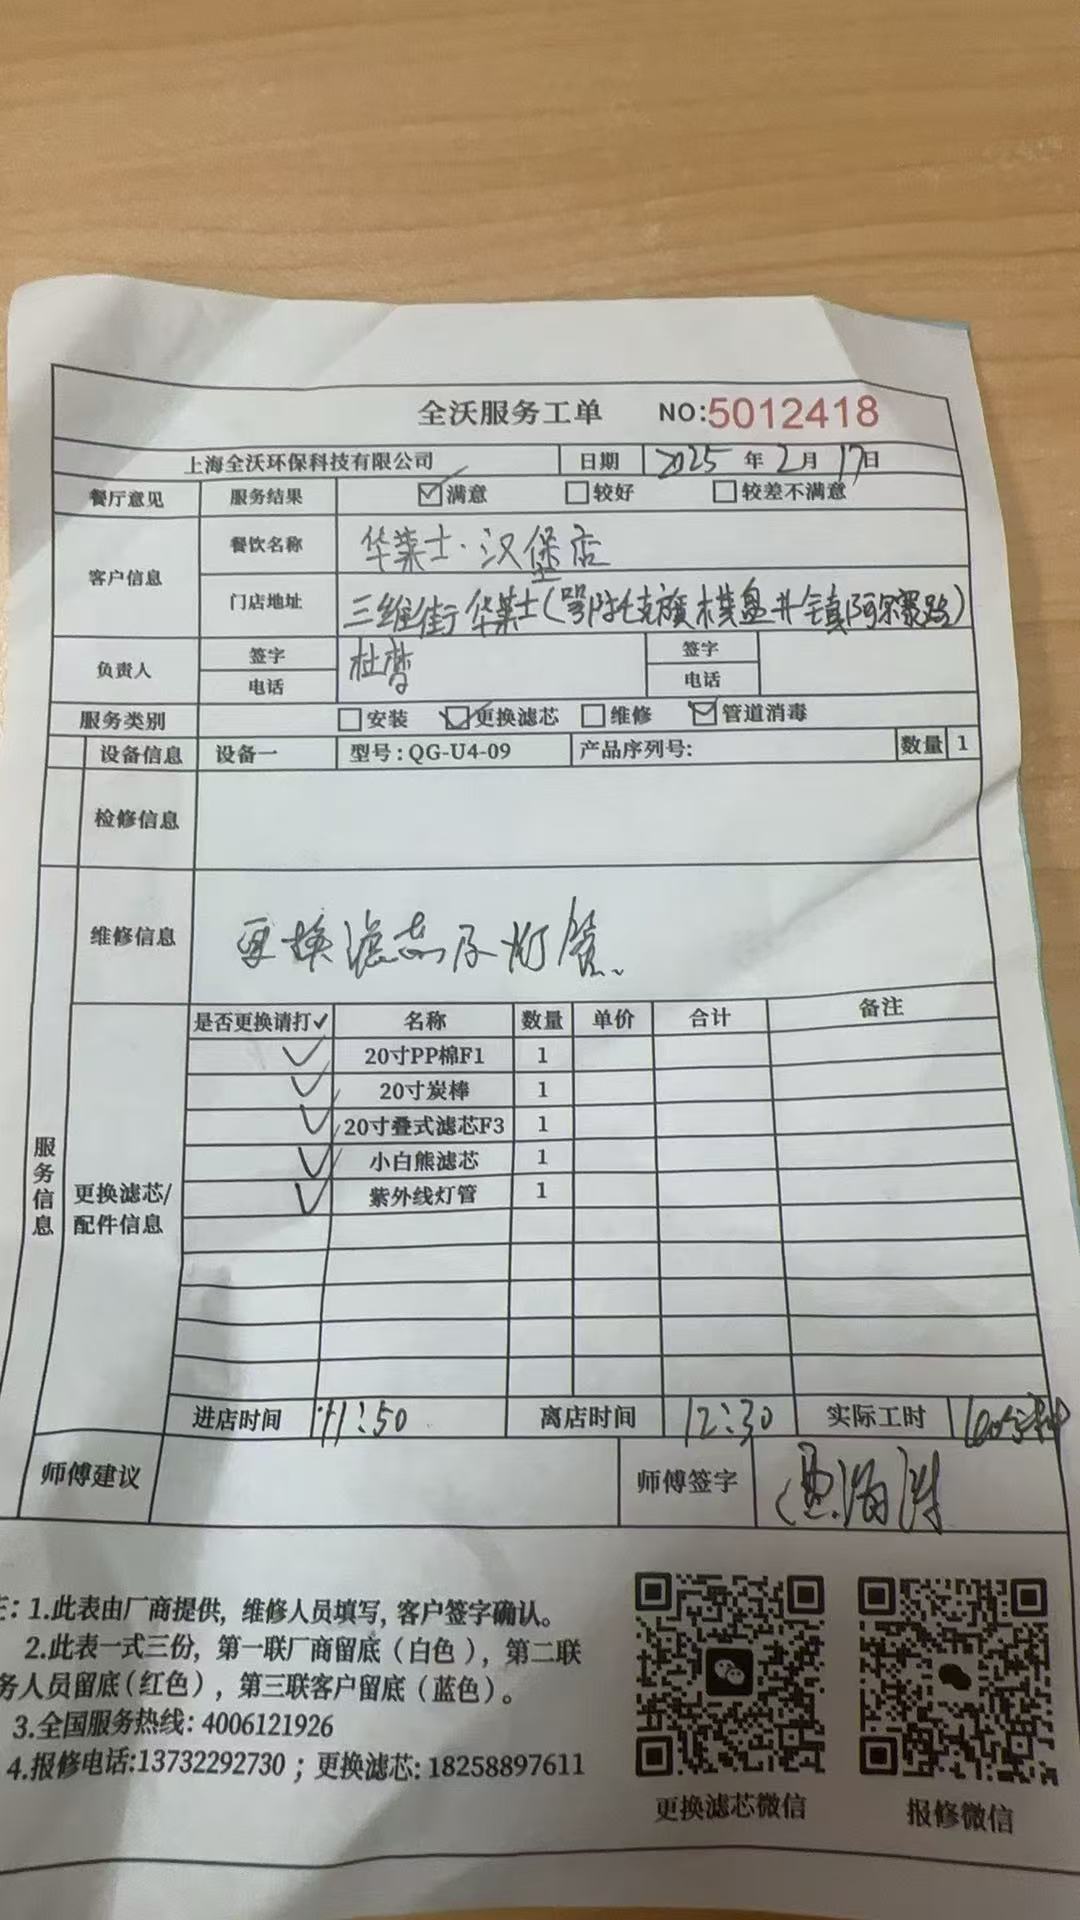 全沃服务工单 NO:5012418
上海全沃环保科技有限公司 日期 2025 年 2 月 17 日
餐厅意见 服务结果 ☑满意 □较好 □较差不满意
客户信息 餐饮名称 华莱士·汉堡店
门店地址 三维街华莱士(鄂托克旗棋盘井镇阿尔寨路)
负责人 签字 杜梦 签字
电话 电话
服务类别 □安装 ☑更换滤芯 □维修 ☑管道消毒
设备信息 设备一 型号:QG-U4-09 产品序列号: 数量 1
检修信息
维修信息 更换滤芯及灯管、
服务信息
更换滤芯/配件信息
是否更换请打✓ 名称 数量 单价 合计 备注
✓ 20寸PP棉F1 1
✓ 20寸炭棒 1
✓ 20寸叠式滤芯F3 1
✓ 小白熊滤芯 1
✓ 紫外线灯管 1
进店时间 11:50 离店时间 12:30 实际工时 分钟
师傅建议 师傅签字
注:1.此表由厂商提供,维修人员填写,客户签字确认。
2.此表一式三份,第一联厂商留底(白色),第二联
务人员留底(红色),第三联客户留底(蓝色)。
3.全国服务热线:4006121926
4.报修电话:13732292730;更换滤芯:18258897611
更换滤芯微信 报修微信